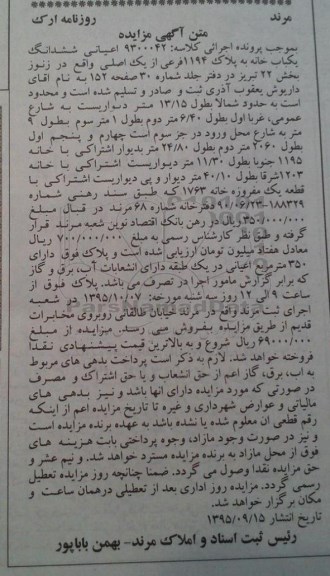 مرند روزنامه ارک
متن آگهی مزایده
بموجب پرونده اجرائی کلاسه: ۹۳۰۰۰۴۲ اعیانی ششدانگ
یکباب خانه به پلاک ۱۱۹۴فرعی از یک اصلی واقع در زنوز
بخش ۲۲ تبریز در دفتر جلد شماره ۳۰ صفحه ۱۵۲ به نام اقای
داریوش یعقوب آذری ثبت و صادر و تسلیم شده است و محدود
است به حدود شمالا بطول ۱۳/۱۵ متر دیواریست به شارع
عمومی، غربا اول بطول ۶/۴۰ متر دوم بطول ۱ متر سوم بطول ۹
متر به شارع محل ورود در جز سوم است چهارم و پنجم اول
بطول ۲۰۶۰ متر دوم بطول ۲۴/۸۰ متر بدیوار اشتراکی با خانه
۱۱۹۵ جنوبا بطول ۱۱/۳۰ متر دیواریست اشتراکی با خانه
۱۲۰۳شرقا بطول ۴۰/۱۰ متر دیوار و پی دیواریست اشتراکی با
قطعه یک مفروزه خانه ۱۷۶۳ که طبق سند رهنی شماره
۱۸۸۳۲۹-۹۰/۰۶/۲۳ دفترخانه شماره ۶۸ مرند در قبال مبلغ
۳۵۰/۰۰۰/۰۰۰ریال در رهن بانک اقتصاد نوین شعبه مرند قرار
گرفته و طبق نظر کارشناس رسمی به مبلغ ۷۰۰/۰۰۰/۰۰۰ ریال
معادل هفتاد میلیون تومان ارزیابی شده است و پلاک فوق دارای
۳۵۰ مترمربع اعیانی در یک طبقه دارای انشعابات آب، برق و گاز
که برابر گزارش مامور اجرا در تصرف می باشد. پلاک فوق از
ساعت ۹ الی ۱۲ روز سه شنبه مورخه: ۱۳۹۵/۱۰/۰۷ در شعبه
اجرای ثبت مرند واقع در مرند خیابان طالقانی روبروی مخابرات
قدیم از طریق مزایده بفروش می رسد. مزایده از مبلغ
۶۹۰۰۰/۰۰۰ ریال شروع و به بالاترین قیمت پیشنهادی نقدا
فروخته خواهد شد. لازم به ذکر است پرداخت بدهی های مربوط
به اب، برق، گاز اعم از حق انشعاب و یا حق اشتراک و مصرف
در صورتی که مورد مزایده دارای انها باشد و نیز بدهی های
مالیاتی و عوارض شهرداری و غیره تا تاریخ مزایده اعم از اینکه
رقم قطعی ان معلوم شده یا نشده باشد به عهده برنده مزایده است
و نیز در صورت وجود مازاد، وجوه پرداختی بابت هزینه های
فوق از محل مازاد به برنده مزایده مسترد خواهد شد. و نیم عشر و
حق مزایده نقدا وصول می گردد. ضمنا چنانچه روز مزایده تعطیل
رسمی گردد. مزایده روز اداری بعد از تعطیلی درهمان ساعت و
مکان برگزار خواهد شد.
تاریخ انتشار ۱۳۹۵/۰۹/۱۵
رئیس ثبت اسناد و املاک مرند- بهمن باباپور